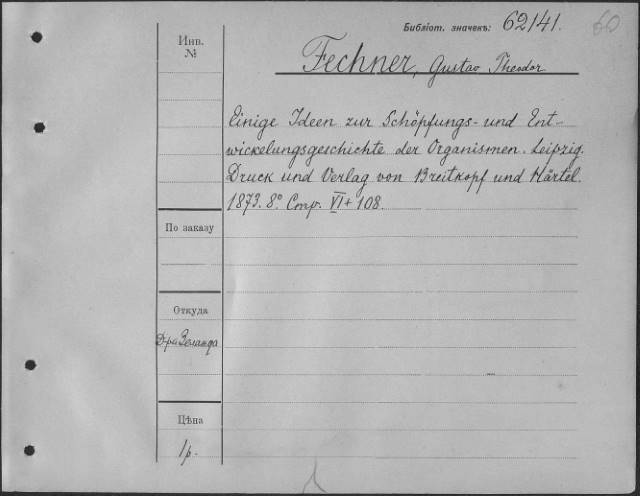 Библіот. значекъ: 62141.
60
Инв.
№
Fechner, Gustav Theodor
Einige Ideen zur Schöpfungs- und Ent-
wickelungsgeschichte der Organismen. Leipzig.
Druck und Verlag von Breitkopf und Härtel.
1873. 8.° Стр. VI + 108.
По заказу
Откуда
Д-ра Зеланда
Цѣна
1 р.